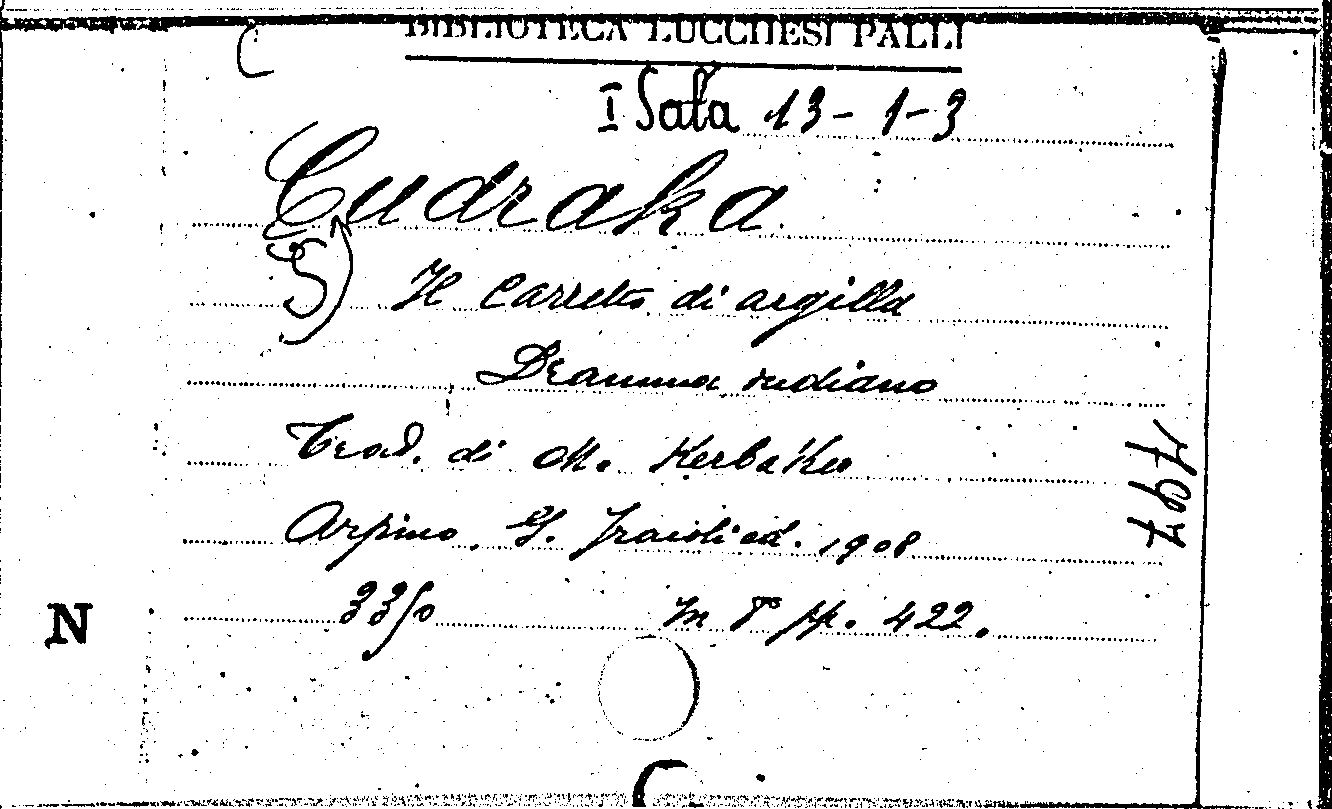 BIBLIOTECA LUCCHESI PALLI
I Sala 13-1-3
Çudraka
Il Carretto di argilla
Dramma indiano
Trad. di M. Kerbaker
Arpino, G. Fraioli ed. 1908
In 8° pp. 422.
N